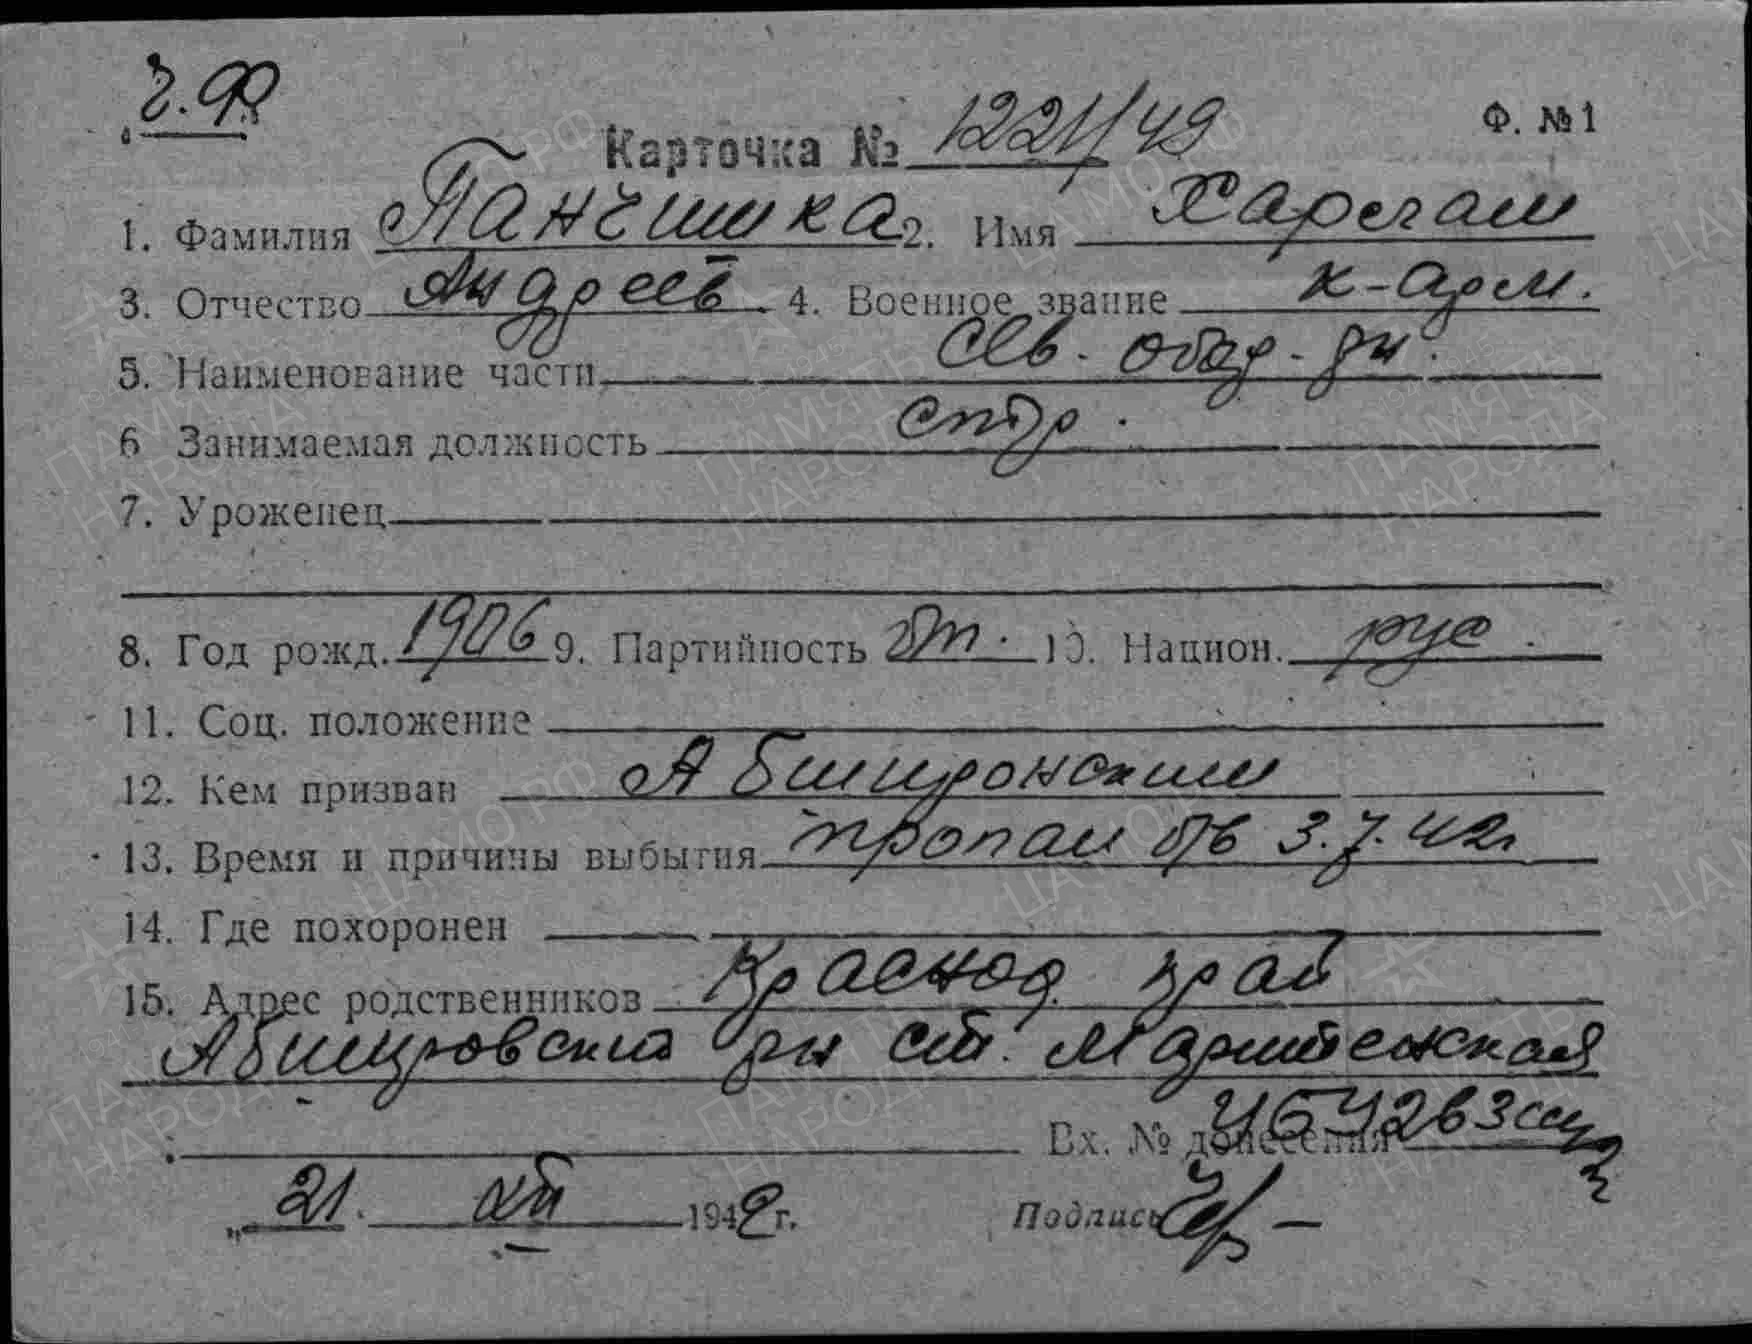 Карточка № 1221/49 Ф. № 1
1. Фамилия Панчишка 2. Имя Харлам
3. Отчество Андреев. 4. Военное звание к-арм.
5. Наименование части Сев. обор. рн.
6 Занимаемая должность стр.
7. Уроженец
8. Год рожд. 1906 9. Партийность 10. Национ. рус.
11. Соц. положение
12. Кем призван Абинронским
13. Время и причины выбытия пропал б/в 3.7.42г
14. Где похоронен
15. Адрес родственников Краснод край
рн ст.
Вх. № донесения
„ 21. 194 2 г. Подпись
ПАМЯТЬ НАРОДА
ЦАМО РФ